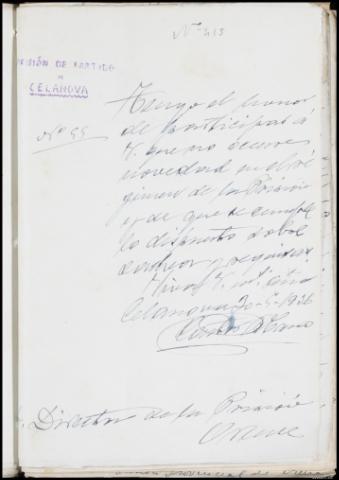 Nº 413
PRISIÓN DE PARTIDO
DE
CELANOVA
Nº 55
Tengo el honor
de participar á
V. que no ocurre
novedad en el ré
gimen de la Prisión
y de que se cumple
lo dispuesto sobre
Viva V. m. años
Celanova 20-5-1936
Director de la Prisión
Orense